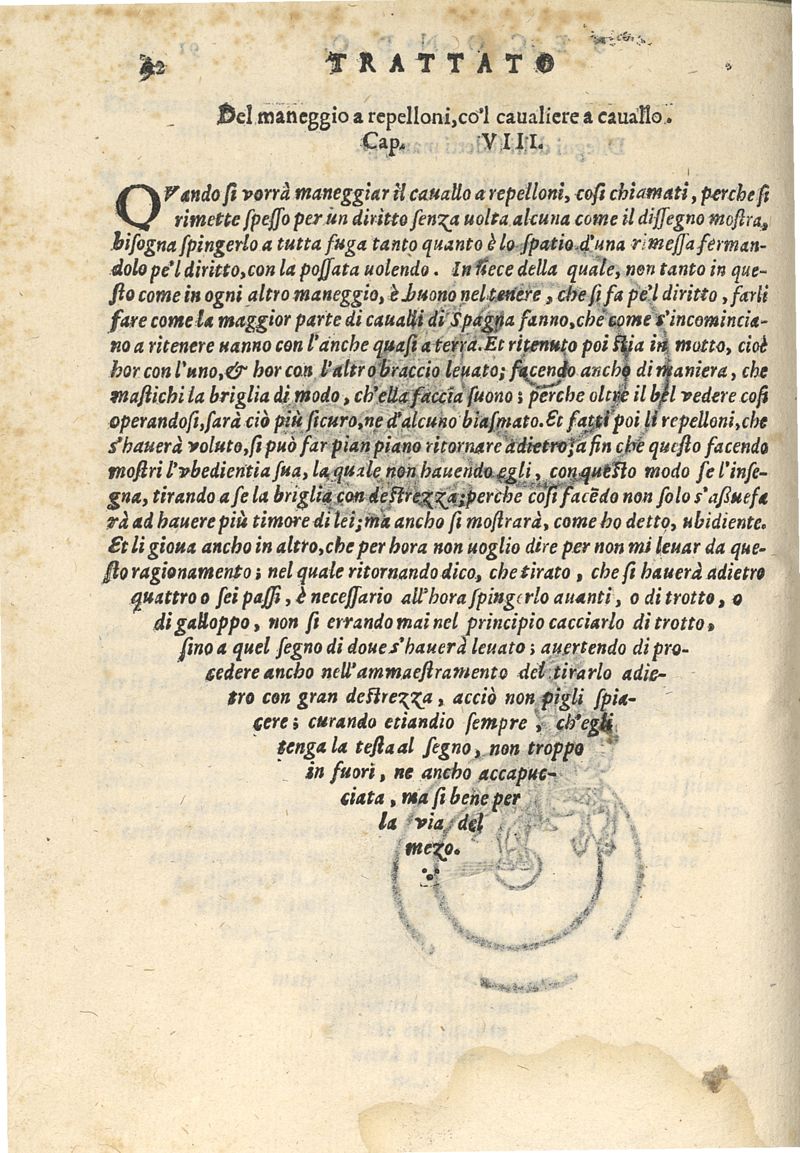 92
TRATTATO
Del maneggio a repelloni, co'l caualiere a cauallo.
Cap. VIII.
QVando si vorrà maneggiar il cauallo a repelloni, cosi chiamati, perche si
rimette spesso per un diritto senza uolta alcuna come il dissegno mostra,
bisogna spingerlo a tutta fuga tanto quanto è lo spatio d'una rimessa ferman-
dolo pe'l diritto, con la possata uolendo. In uece della quale, non tanto in que-
sto come in ogni altro maneggio, è buono nel tenere, che si fa pe'l diritto, farli
fare come la maggior parte di caualli di Spagna fanno, che come s'incomincia-
no a ritenere uanno con l'anche quasi a terra. Et ritenuto poi stia in motto, cioè
hor con l'uno, & hor con l'altro braccio leuato; facendo ancho di maniera, che
mastichi la briglia di modo, ch'ella faccia suono; perche oltre il bel vedere cosi
operandosi, sarà ciò più sicuro, ne d'alcuno biasmato. Et fatti poi li repelloni, che
s'hauerà voluto, si può far pian piano ritornare adietro, a fin che questo facendo
mostri l'vbedientia sua, la quale non hauendo egli, con questo modo se l'inse-
gna, tirando a se la briglia con destrezza; perche cosi facēdo non solo s'assuefa
rà ad hauere più timore di lei; ma ancho si mostrarà, come ho detto, ubidiente.
Et li gioua ancho in altro, che per hora non uoglio dire per non mi leuar da que-
sto ragionamento; nel quale ritornando dico, che tirato, che si hauerà adietro
quattro o sei passi, è necessario all'hora spingerlo auanti, o di trotto, o
di galloppo, non si errando mai nel principio cacciarlo di trotto,
sino a quel segno di doue s'hauerà leuato; auertendo di pro-
cedere ancho nell'ammaestramento del tirarlo adie-
tro con gran destrezza, acciò non pigli spia-
cere; curando etiandio sempre, ch'egli
tenga la testa al segno, non troppo
in fuori, ne ancho accapuc-
ciata, ma si bene per
la via del
mezo.